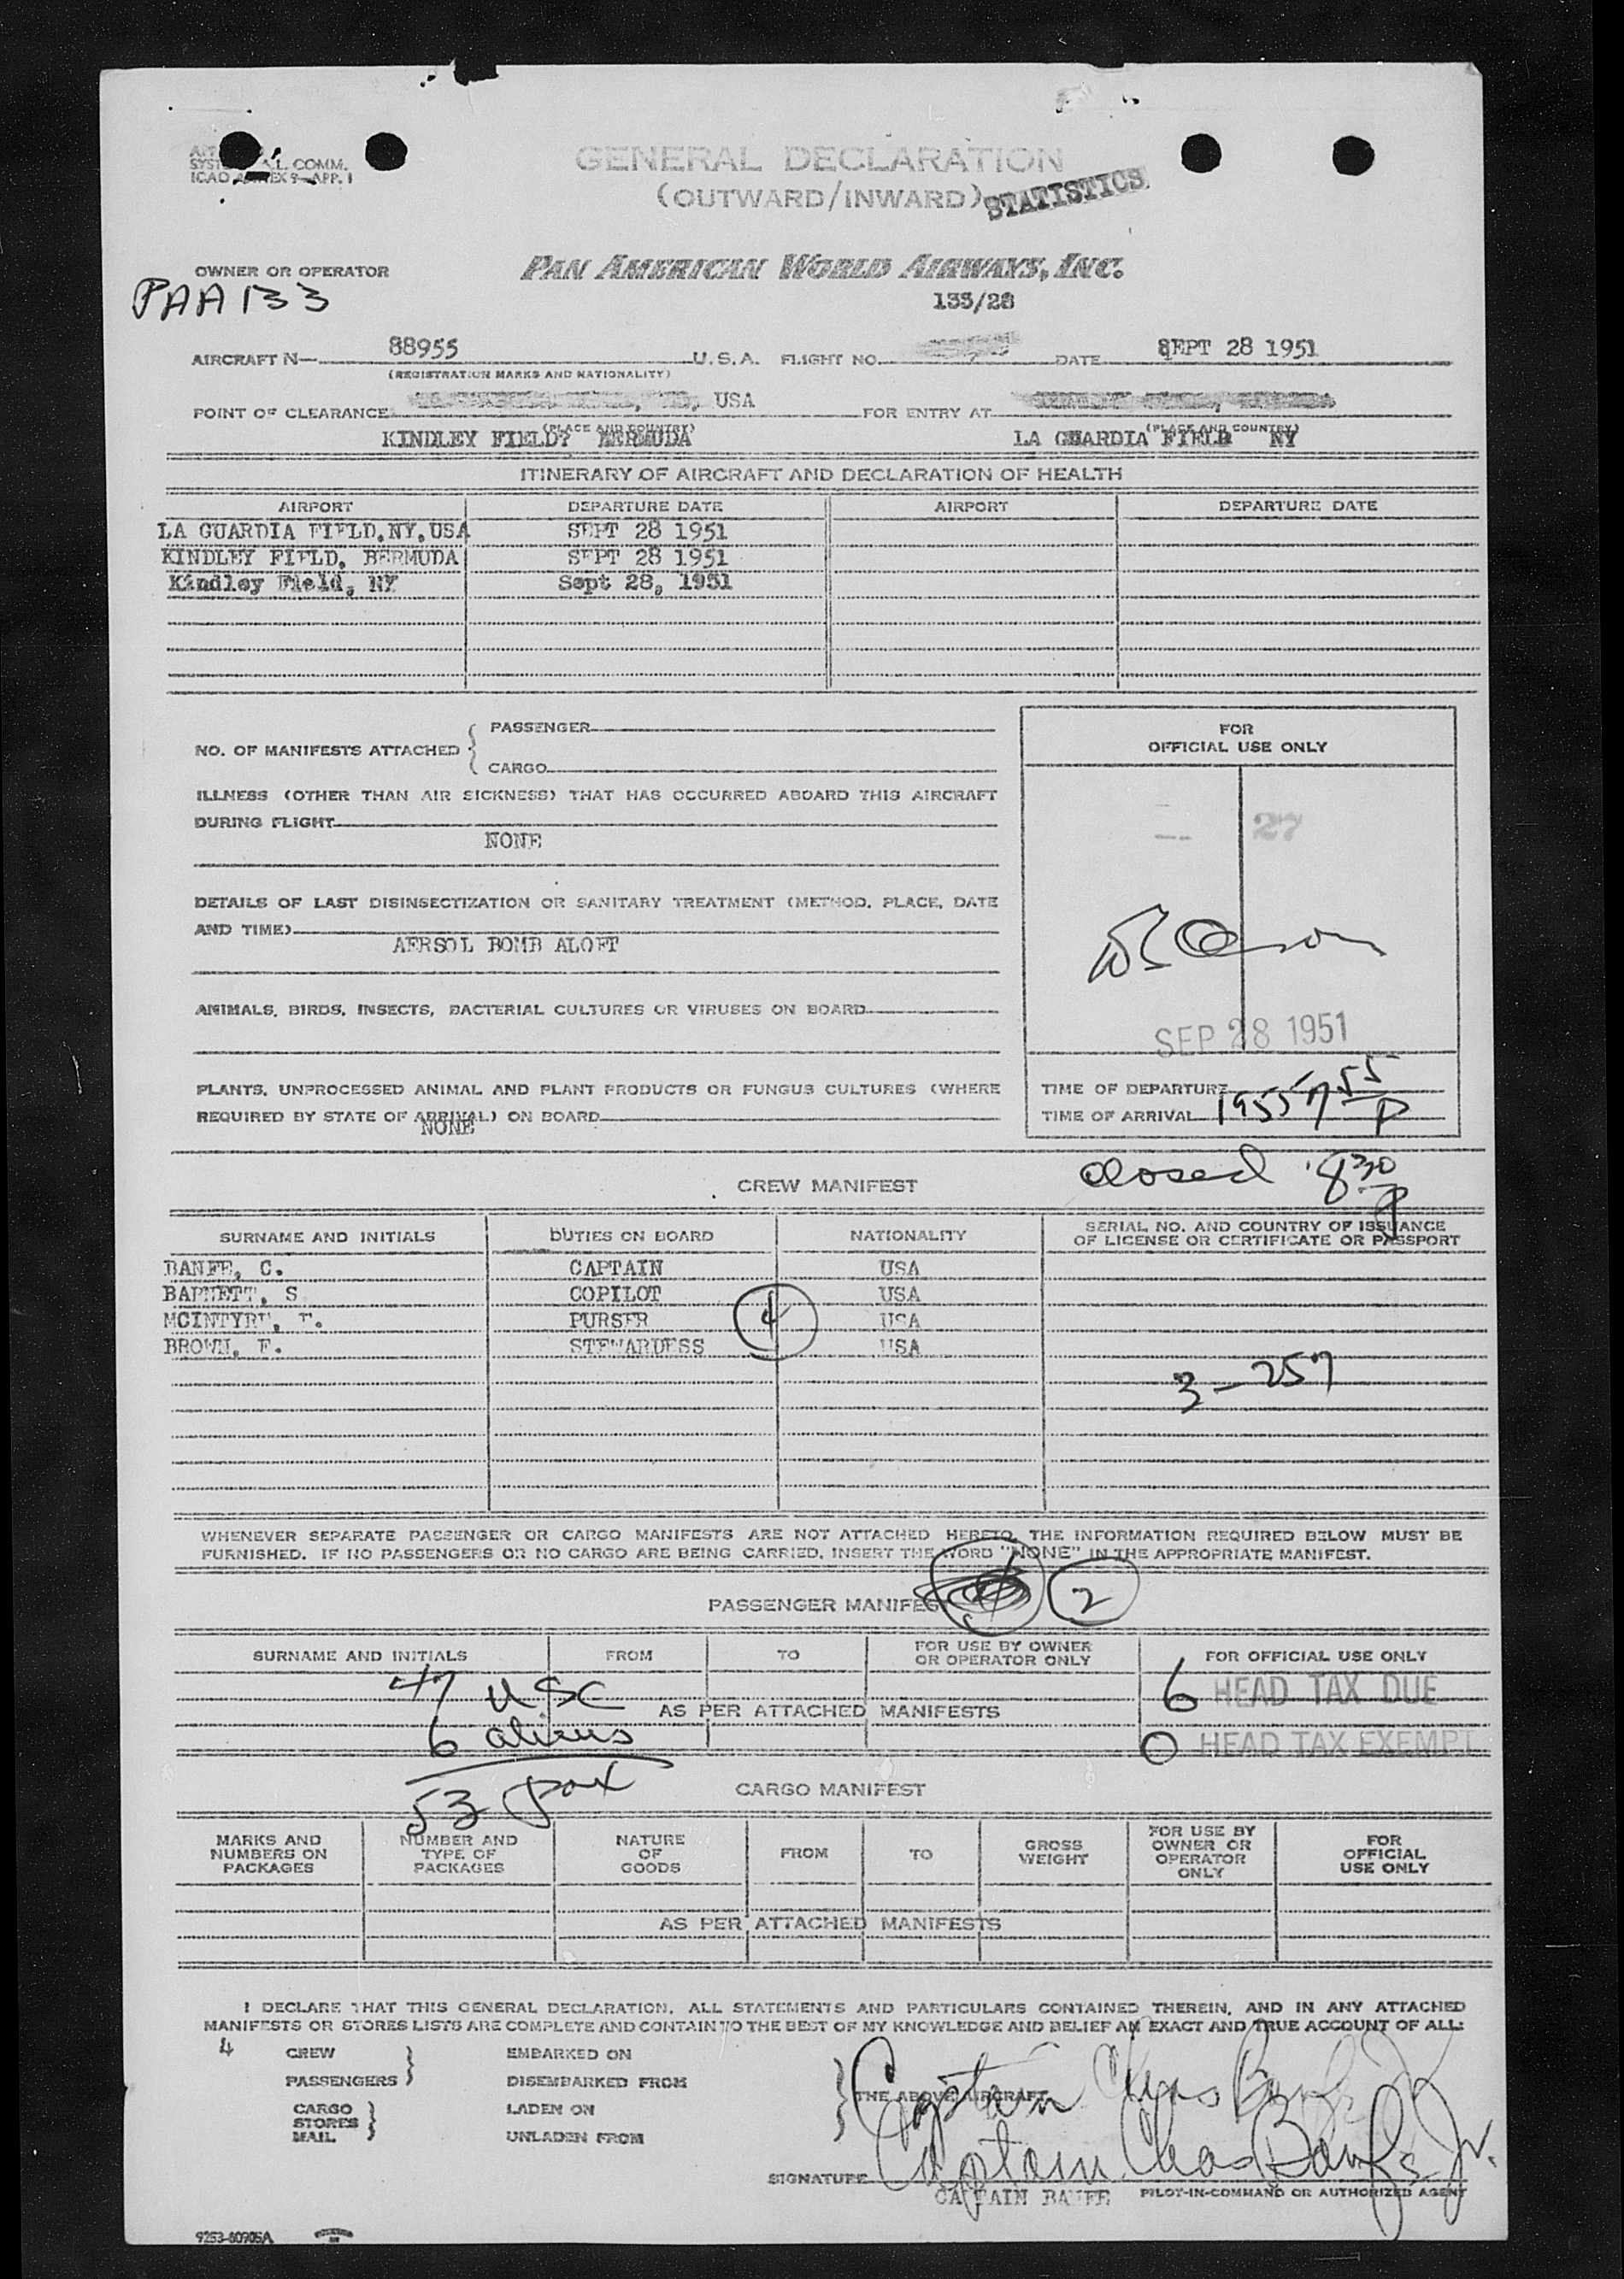 COMM.
ICAO ANNEX 9—APP. 1
GENERAL DECLARATION
(OUTWARD/INWARD)
STATISTICS
OWNER OR OPERATOR
PAN AMERICAN WORLD AIRWAYS, INC.
PAA 133
133/28
AIRCRAFT N— 88955 U.S.A. FLIGHT NO. DATE SEPT 28 1951
(REGISTRATION MARKS AND NATIONALITY)
POINT OF CLEARANCE USA FOR ENTRY AT
(PLACE AND COUNTRY) (PLACE AND COUNTRY)
KINDLEY FIELD? BERMUDA LA GUARDIA FIELD NY
ITINERARY OF AIRCRAFT AND DECLARATION OF HEALTH
AIRPORT DEPARTURE DATE AIRPORT DEPARTURE DATE
LA GUARDIA FIELD,NY,USA SEPT 28 1951
KINDLEY FIELD, BERMUDA SEPT 28 1951
Kindley Field, NY Sept 28, 1951
NO. OF MANIFESTS ATTACHED { PASSENGER
CARGO
FOR
OFFICIAL USE ONLY
ILLNESS (OTHER THAN AIR SICKNESS) THAT HAS OCCURRED ABOARD THIS AIRCRAFT
DURING FLIGHT
NONE
27
DETAILS OF LAST DISINSECTIZATION OR SANITARY TREATMENT (METHOD, PLACE, DATE
AND TIME)
AERSOL BOMB ALOFT
ANIMALS, BIRDS, INSECTS, BACTERIAL CULTURES OR VIRUSES ON BOARD
SEP 28 1951
PLANTS, UNPROCESSED ANIMAL AND PLANT PRODUCTS OR FUNGUS CULTURES (WHERE
REQUIRED BY STATE OF ARRIVAL) ON BOARD
NONE
TIME OF DEPARTURE
TIME OF ARRIVAL 1955 7 55 P
closed 8 30 P
CREW MANIFEST
SURNAME AND INITIALS DUTIES ON BOARD NATIONALITY SERIAL NO. AND COUNTRY OF ISSUANCE
OF LICENSE OR CERTIFICATE OR PASSPORT
BANFE, C. CAPTAIN USA
BARNETT, S COPILOT USA
MCINTYRE, PURSER 4 USA
BROWN, F. STEWARDESS USA
3-257
WHENEVER SEPARATE PASSENGER OR CARGO MANIFESTS ARE NOT ATTACHED HERETO, THE INFORMATION REQUIRED BELOW MUST BE
FURNISHED. IF NO PASSENGERS OR NO CARGO ARE BEING CARRIED, INSERT THE WORD "NONE" IN THE APPROPRIATE MANIFEST.
PASSENGER MANIFEST 2
SURNAME AND INITIALS FROM TO FOR USE BY OWNER
OR OPERATOR ONLY FOR OFFICIAL USE ONLY
47 USC 6 HEAD TAX DUE
AS PER ATTACHED MANIFESTS
6 aliens 0 HEAD TAX EXEMPT
53 pax
CARGO MANIFEST
MARKS AND
NUMBERS ON
PACKAGES
NUMBER AND
TYPE OF
PACKAGES
NATURE
OF
GOODS
FROM
TO
GROSS
WEIGHT
FOR USE BY
OWNER OR
OPERATOR
ONLY
FOR
OFFICIAL
USE ONLY
AS PER ATTACHED MANIFESTS
I DECLARE THAT THIS GENERAL DECLARATION, ALL STATEMENTS AND PARTICULARS CONTAINED THEREIN, AND IN ANY ATTACHED
MANIFESTS OR STORES LISTS ARE COMPLETE AND CONTAIN TO THE BEST OF MY KNOWLEDGE AND BELIEF AN EXACT AND TRUE ACCOUNT OF ALL:
4 CREW EMBARKED ON
PASSENGERS DISEMBARKED FROM
THE ABOVE AIRCRAFT
CARGO LADEN ON
STORES
MAIL UNLADEN FROM
Captain Chas Banfe Jr
SIGNATURE Captain Chas Banfe Jr.
CAPTAIN BANFE PILOT-IN-COMMAND OR AUTHORIZED AGENT
9253-60905A